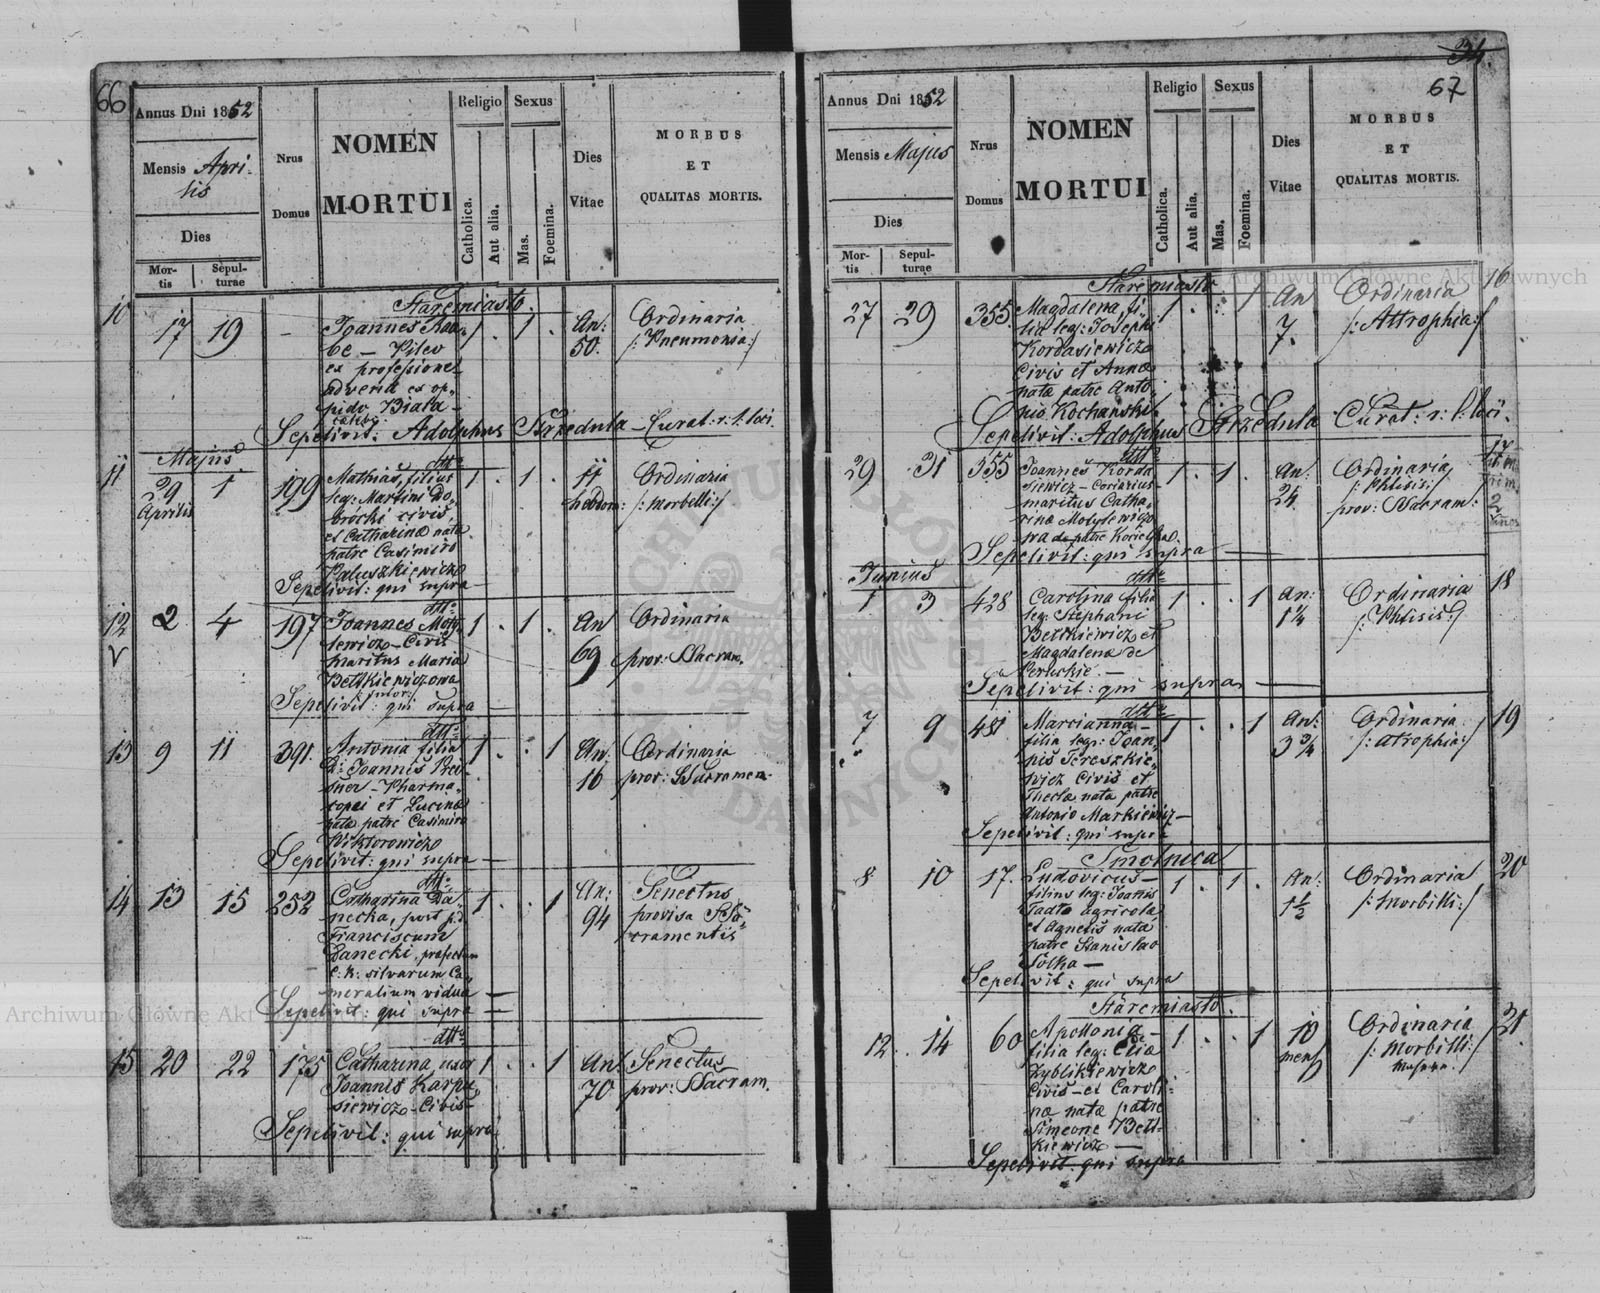 66
Annus Dni 1852
Mensis Apri-
lis
Dies
Mor-
tis
Sepul-
turae
Nrus
Domus
NOMEN
MORTUI
Religio
Catholica.
Aut alia.
Sexus
Mas.
Foemina.
Dies
Vitae
MORBUS
ET
QUALITAS MORTIS.
Staremiasto.
10
17 19 -
Joannes
be - Pileo
ex professione
advena ex op-
pido Biała
1 . 1 .
An:
50.
Ordinaria
/: Pneumonia:/
Sepelivit: Adolphus Strzeduła - Curat: r: l: loci.
Majus
dtto
11
29
Aprilis
1
199
Mathias, filius
leg: Martini Do-
brócki civis,
et Catharina nata
patre Casimiro
Paluszkiewicz
1 . 1 .
11
hebdom:
Ordinaria
/: Morbilli:/
Sepelivit: qui supra
dtto
12
2 4 197
Joannes Moty-
lewicz - Civis
maritus Maria
Bettkiewiczowa
1 . 1 .
An
69
Ordinaria
prov: SSacram.
Sepelivit: qui supra
dtto
13
9 11 391
Antonia filia
D: Joannis
- Pharma-
copei et Lucina
nata patre Casimiro
Wiktorowicz
1 . . 1
An:
16
Ordinaria
prov: SSacramen.
Sepelivit: qui supra
dtto
14
13 15 252
Catharina Ba-
necka, post p:d
Franciscum
Banecki, praefectum
c: k: silvarum Ca-
meralium vidua
1 . . 1
An:
94
Senectus
provisa SSa-
cramentis
Sepelivit: qui supra
dtto
15
20 22 175
Catharina, uxor
Joannis Karpu-
siewicz - Civis
1 . . 1
An:
70
Senectus
prov: SSacram.
Sepelivit: qui supra
34.
67
Annus Dni 1852
Mensis Majus
Dies
Mor-
tis
Sepul-
turae
Nrus
Domus
NOMEN
MORTUI
Religio
Catholica.
Aut alia.
Sexus
Mas.
Foemina.
Dies
Vitae
MORBUS
ET
QUALITAS MORTIS.
Staremiasto
27 29 355
Magdalena, fi-
lia leg: Josephi
Kordasiewicz
Civis et Anna
nata patre Anto-
nio Kochański
1 . . 1
An
7.
Ordinaria
/: Attrophia:/
16
Sepelivit: Adolphus Strzeduła Curat: r: l: loci.
dtto
29 31 355
Joannes Korda
siewicz - Coriarius
maritus Catha-
rina Motylewiczo
wa de patre
1 . 1 .
An:
24.
Ordinaria
/: Phtisis:/
prov: SSacram:
17
Sepelivit: qui supra
Junius
dtto
1 3 428
Carolina filia
leg: Stephani
Bettkiewicz et
Magdalena de
1 . . 1
An:
1¼
Ordinaria
/: Phtisis:/
18
Sepelivit: qui supra
dtto
7 9 481
Marcianna -
filia leg: Joan-
nis Tereszkie-
wicz Civis et
Thecla nata patre
Antonio Markiewicz -
1 . . 1
An:
3¾
Ordinaria
/: atrophia:/
19
Sepelivit: qui supra
Smolnica
8 10 17.
Ludovicus -
filius leg: Joannis
agricola
et Agnetis nata
patre Stanislao
Solka -
1 . 1 .
An:
1½
Ordinaria
/: Morbilli:/
20
Sepelivit: qui supra
Staremiasto.
12. 14 60
Apollonia -
filia leg: Elia
Zyblikiewicz
Civis - et Caroli-
na nata patre
Simeone Bett-
kiewicz -
1 . . 1
10
mens
Ordinaria
/: Morbilli:/
21
Sepelivit: qui supra
Archiwum Główne Akt Dawnych
Archiwum Główne Akt
ARCHIWUM GŁÓWNE AKT DAWNYCH